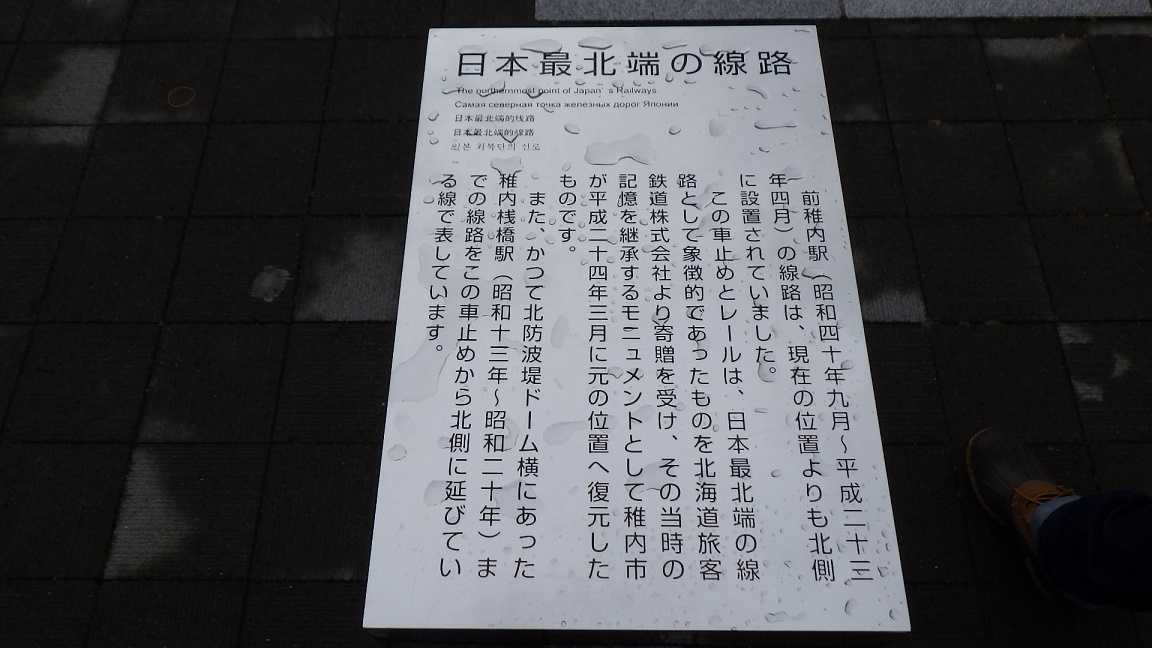 日本最北端の線路
The northernmost point of Japan's Railways
Самая северная точка железных дорог Японии
日本最北端的线路
日本最北端的線路
일본 최북단의 선로
前稚内駅（昭和四十年九月～平成二十三
年四月）の線路は、現在の位置よりも北側
に設置されていました。
この車止めとレールは、日本最北端の線
路として象徴的であったものを北海道旅客
鉄道株式会社より寄贈を受け、その当時の
記憶を継承するモニュメントとして稚内市
が平成二十四年三月に元の位置へ復元した
ものです。
また、かつて北防波堤ドーム横にあった
稚内桟橋駅（昭和十三年～昭和二十年）ま
での線路をこの車止めから北側に延びてい
る線で表しています。